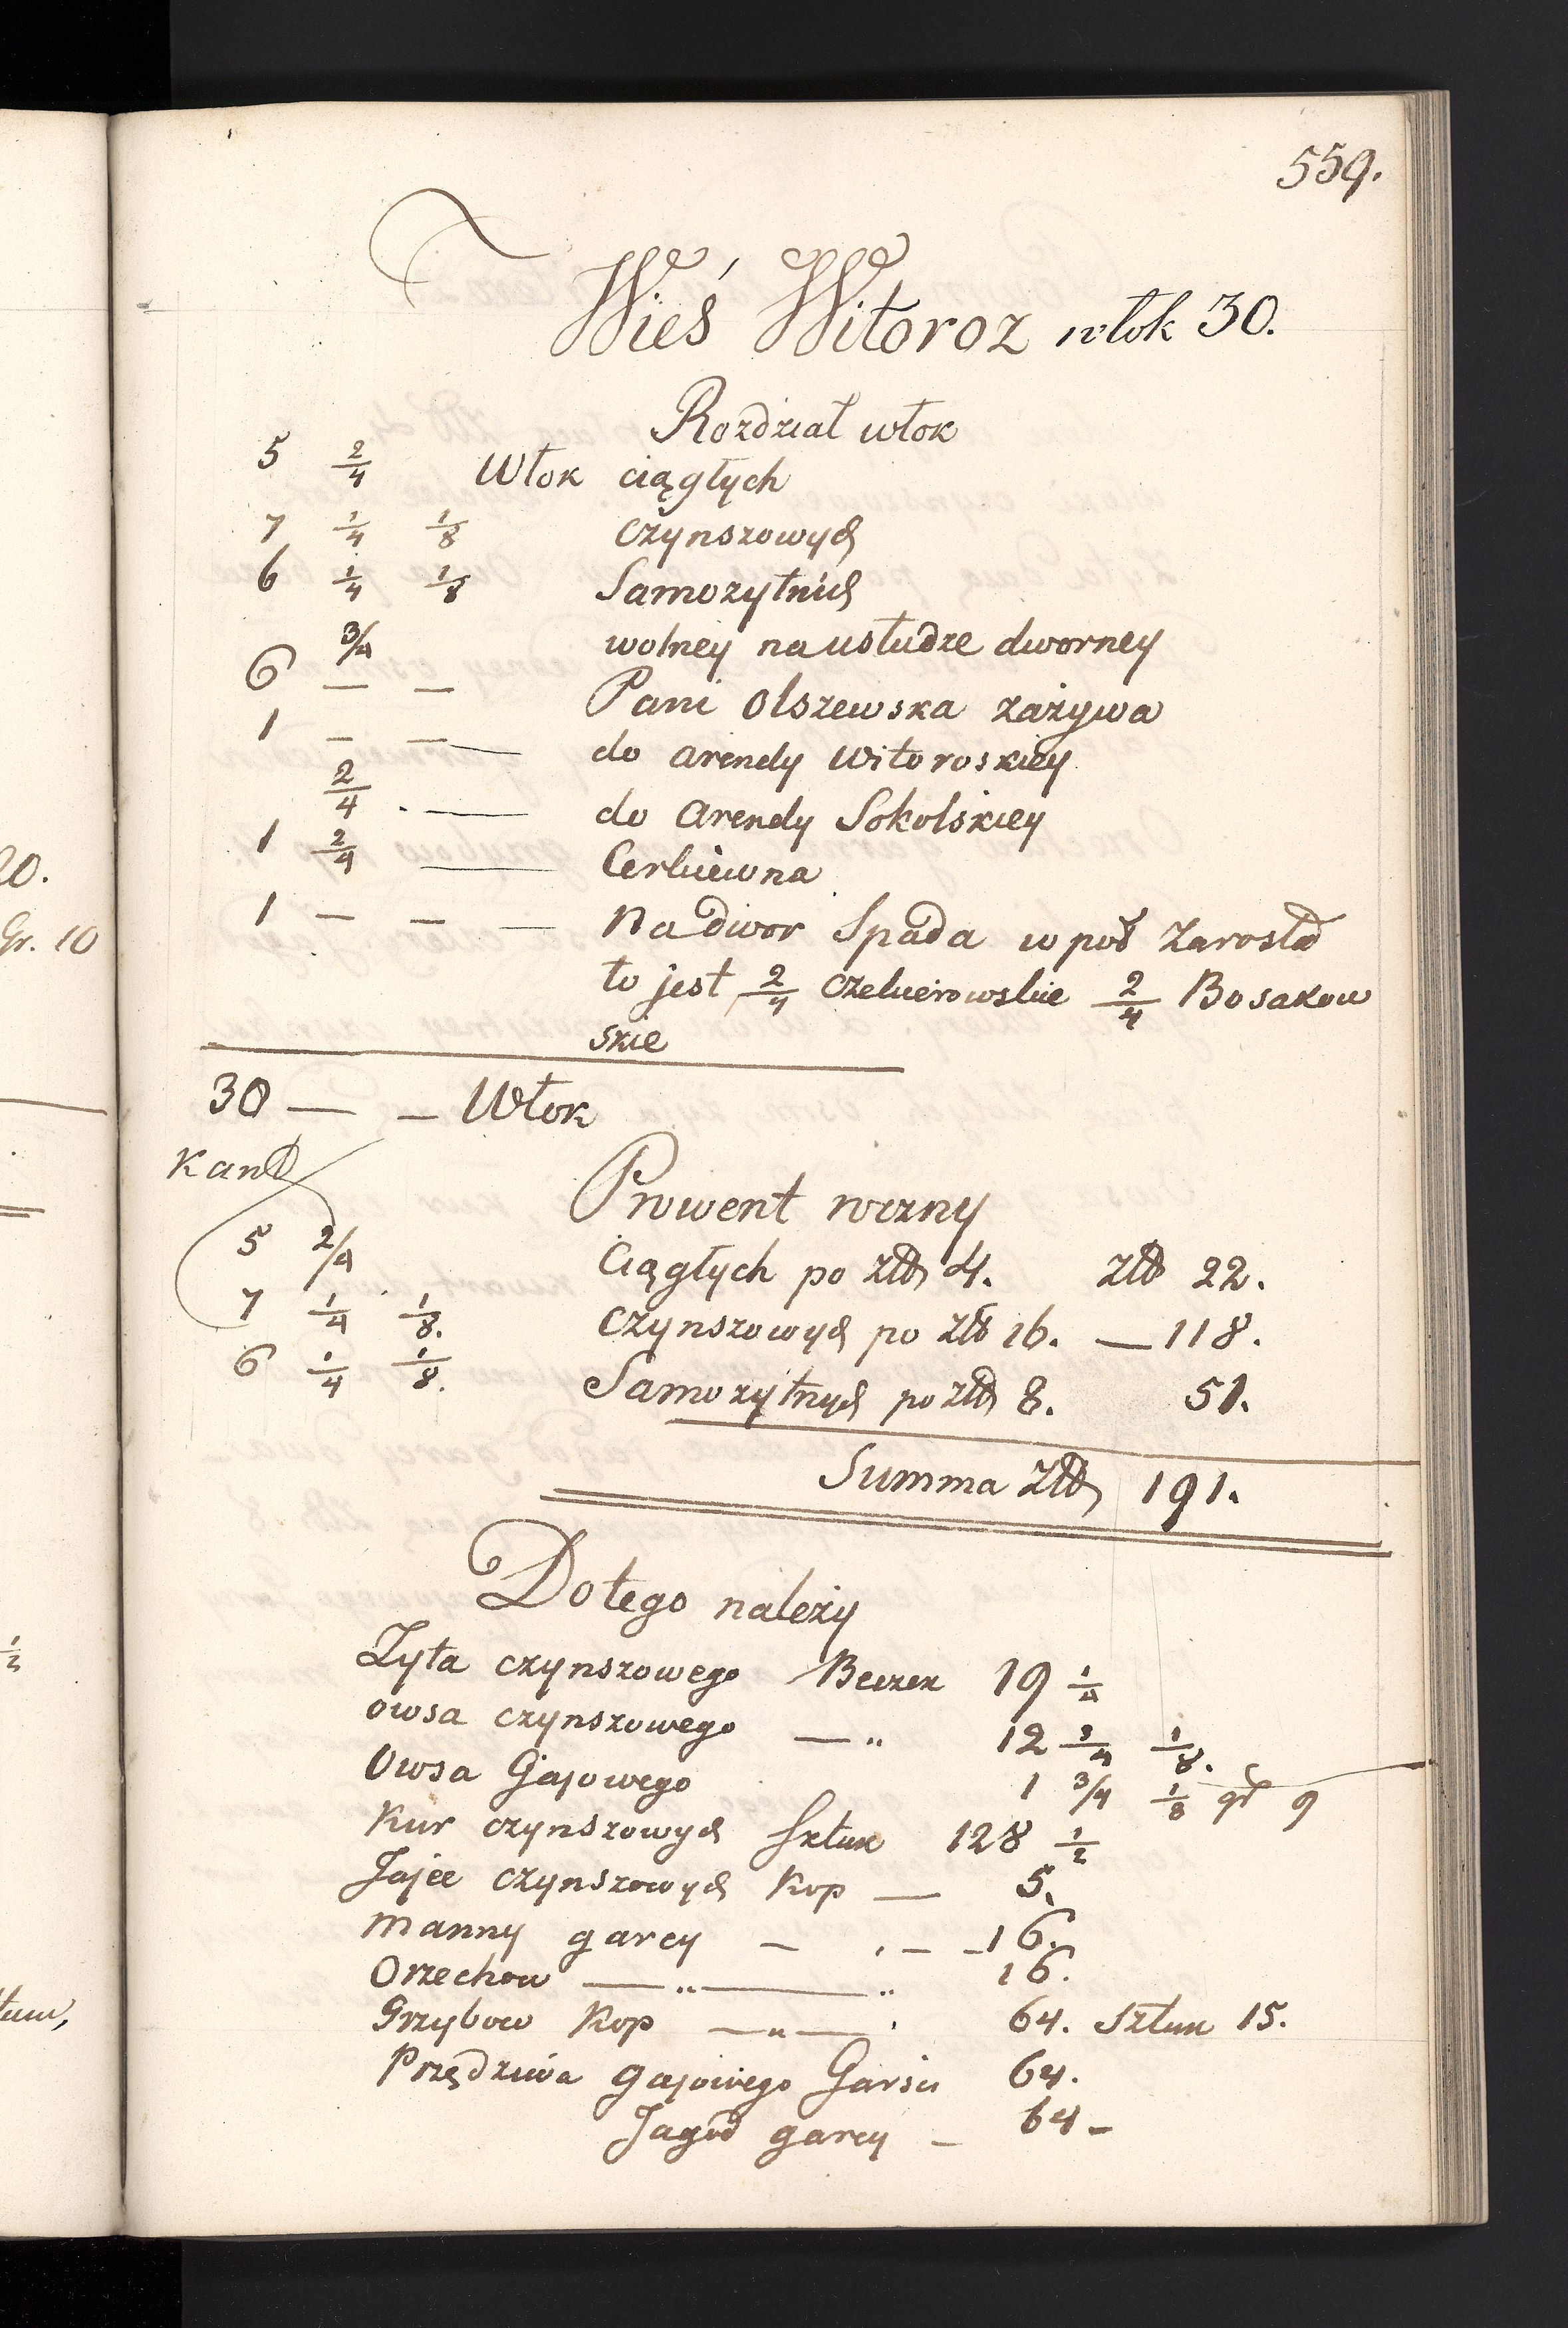 559.
Wieś Witoroz włok 30.
Rozdział włok
5 2/4 Włok ciągłych
7 1/4 1/8 czynszowych
6 1/4 1/8 Samozytnich
3/4 wolney na usłudze dworney
6 — — Pani Olszewska zażywa
1 — — — do arendy Witoroskiey
2/4 . — do Arendy Sokolskiey
1 2/4 — Cerkiewna
1 — — — Na dwor Spada w poł Zarosła
to jest 2/4 czekierowskie 2/4 Bosakow
skie
30 — — Włok
Prowent roczny
5 2/4 Ciągłych po złł 4. złł 22.
7 1/4 1/8. czynszowych po złł 16. — 118.
6 1/4 1/8. Samozytnych po złł 8. 51.
Summa Złł 191.
Dotego należy
Zyta czynszowego Beczek 19 1/4
owsa czynszowego — „ 12 3/4 1/8.
Owsa Gajowego 1 3/4 1/8 9
Kur czynszowych Sztuk 128 1/2
Jajec czynszowych Kop — 5.
Manny garcy — , — — 16.
Orzechow — „ — „ 16.
Grzybow Kop — „ — ' 64. Sztuk 15.
Przędziwa gajowego Garści 64.
Jagod garcy — 64 –
20.
Gr. 10
1/2